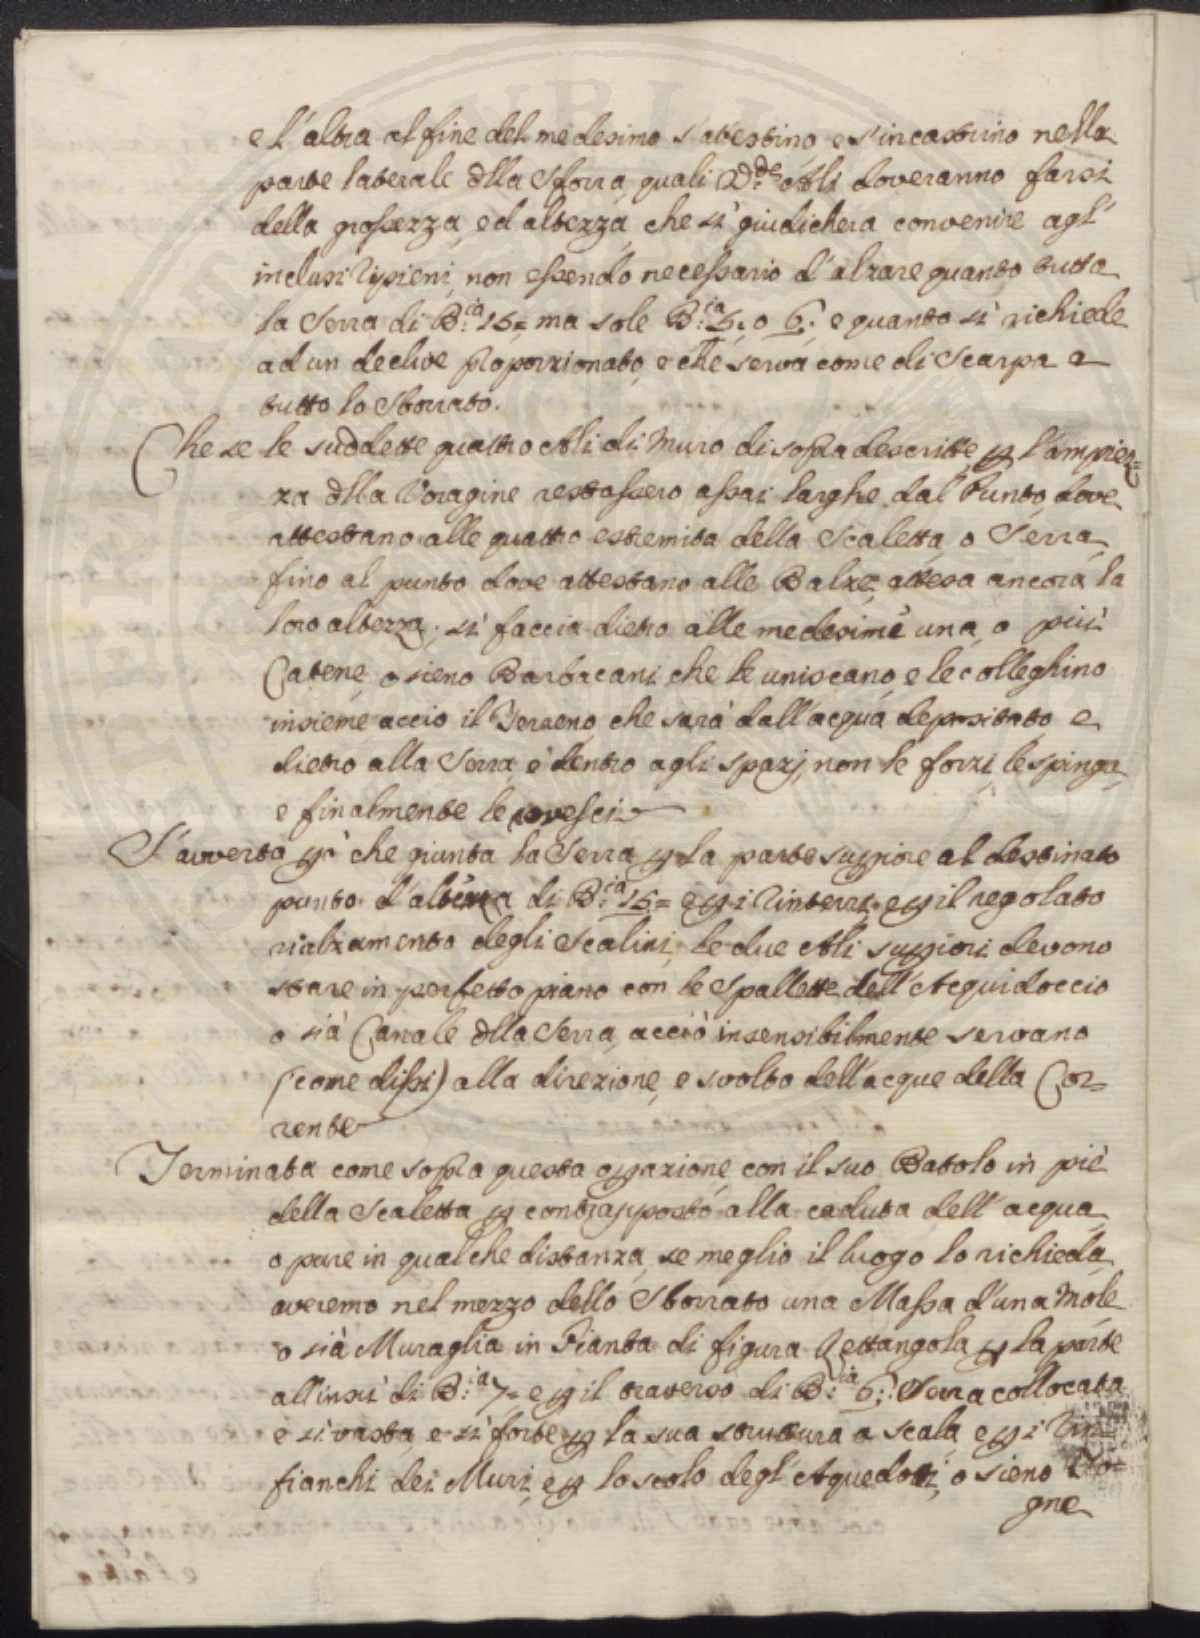 e l'altra al fine del medesimo s'attestino, e s'incastrino nella
parte laterale dlla Sforra, quali Dde Ali doveranno farsi
della grossezza, ed altezza, che si giudicherà convenire agl'
inclusi ripieni, non essendo necessario d'alzare quanto tutta
la Serra di B:cia 15= ma sole B:cia 5: o 6: e quanto si richiede
ad un declive proporzionato, e che serva come di Scarpa a
tutto lo Sborrato.
Che se le suddette quattro Ali di Muro di sopra descritte p l'ampiez=
za dlla Voragine restassero assai larghe dal Punto, dove
attestano alle quattro estremita della Scaletta, o Serra,
fino al punto dove attestano alle Balze, attesa ancora la
loro altezza; si faccia dietro alle medesime una, o più
Catene, o sieno Barbacani, che le uniscano, e le colleghino
insieme accio il Terreno, che sarà dall'acqua depositato e
dietro alla Serra, e dentro agli spazj, non le forzi, le spinga,
e finalmente le rovesci.
S'avverta pò che giunta la Serra p la parte supiore al destinato
punto d'altezza di B:cia 15= e p i Rinterri, e p il regolato
rialzamento degli Scalini, le due Ali supiori devono
stare in perfetto piano con le Spallette dell'Acquidoccio
o sià Canale dlla Serra, acciò insensibilmente servano
(come dissi) alla direzione, e svolto dell'acque della Cor=
rente
Terminata come sopra questa opazione, con il suo Batolo in piè
della Scaletta p contrapposto alla caduta dell'acqua,
o pure in qualche distanza, se meglio il luogo lo richieda,
averemo nel mezzo dello Sborrato una Massa d'una Mole
o sià Muraglia in Pianta di figura Rettangola p la parte
all'insù di B:cia 7= e p il traverso di B:cia 6: Serra collocata
e si vasta, e si forte p la sua struttura a scala, e p i Rin=
fianchi dei Muri, e p lo scolo degl'Aquedotti, o sieno Fo=
gne